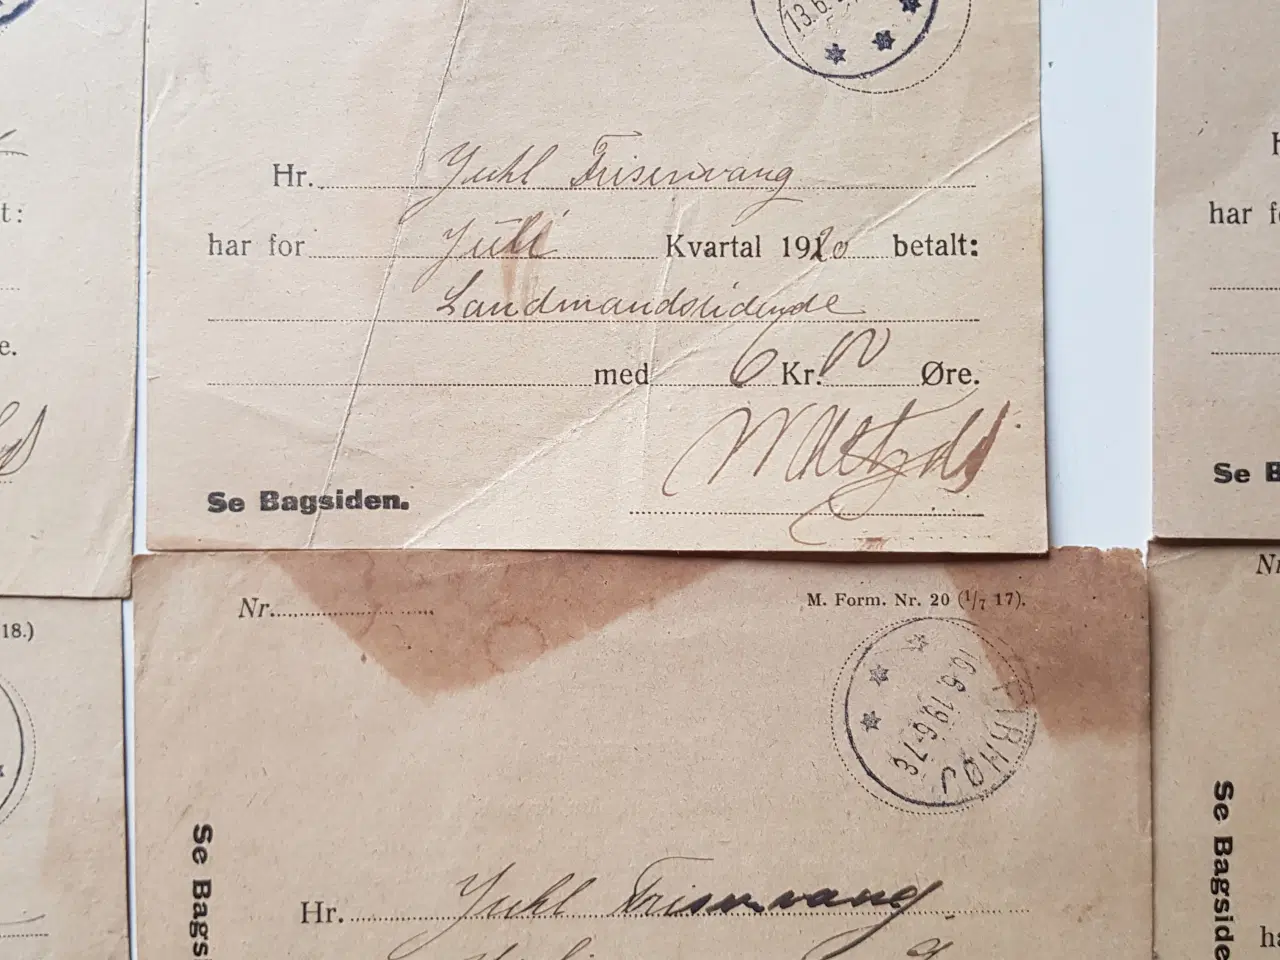 13.6.
Hr. Juhl Frisenvang
har for Juli Kvartal 1920 betalt:
Landmandstidende
med 6 Kr. 00 Øre.
Se Bagsiden.
t:
e.
18.)
Nr.
M. Form. Nr. 20 (1/7 17).
16.6.19.6-7E
VIRHØJ
Hr. Juhl Frisenvang
Se Bags
har f
Se B
Nr
Se Bagside
ha